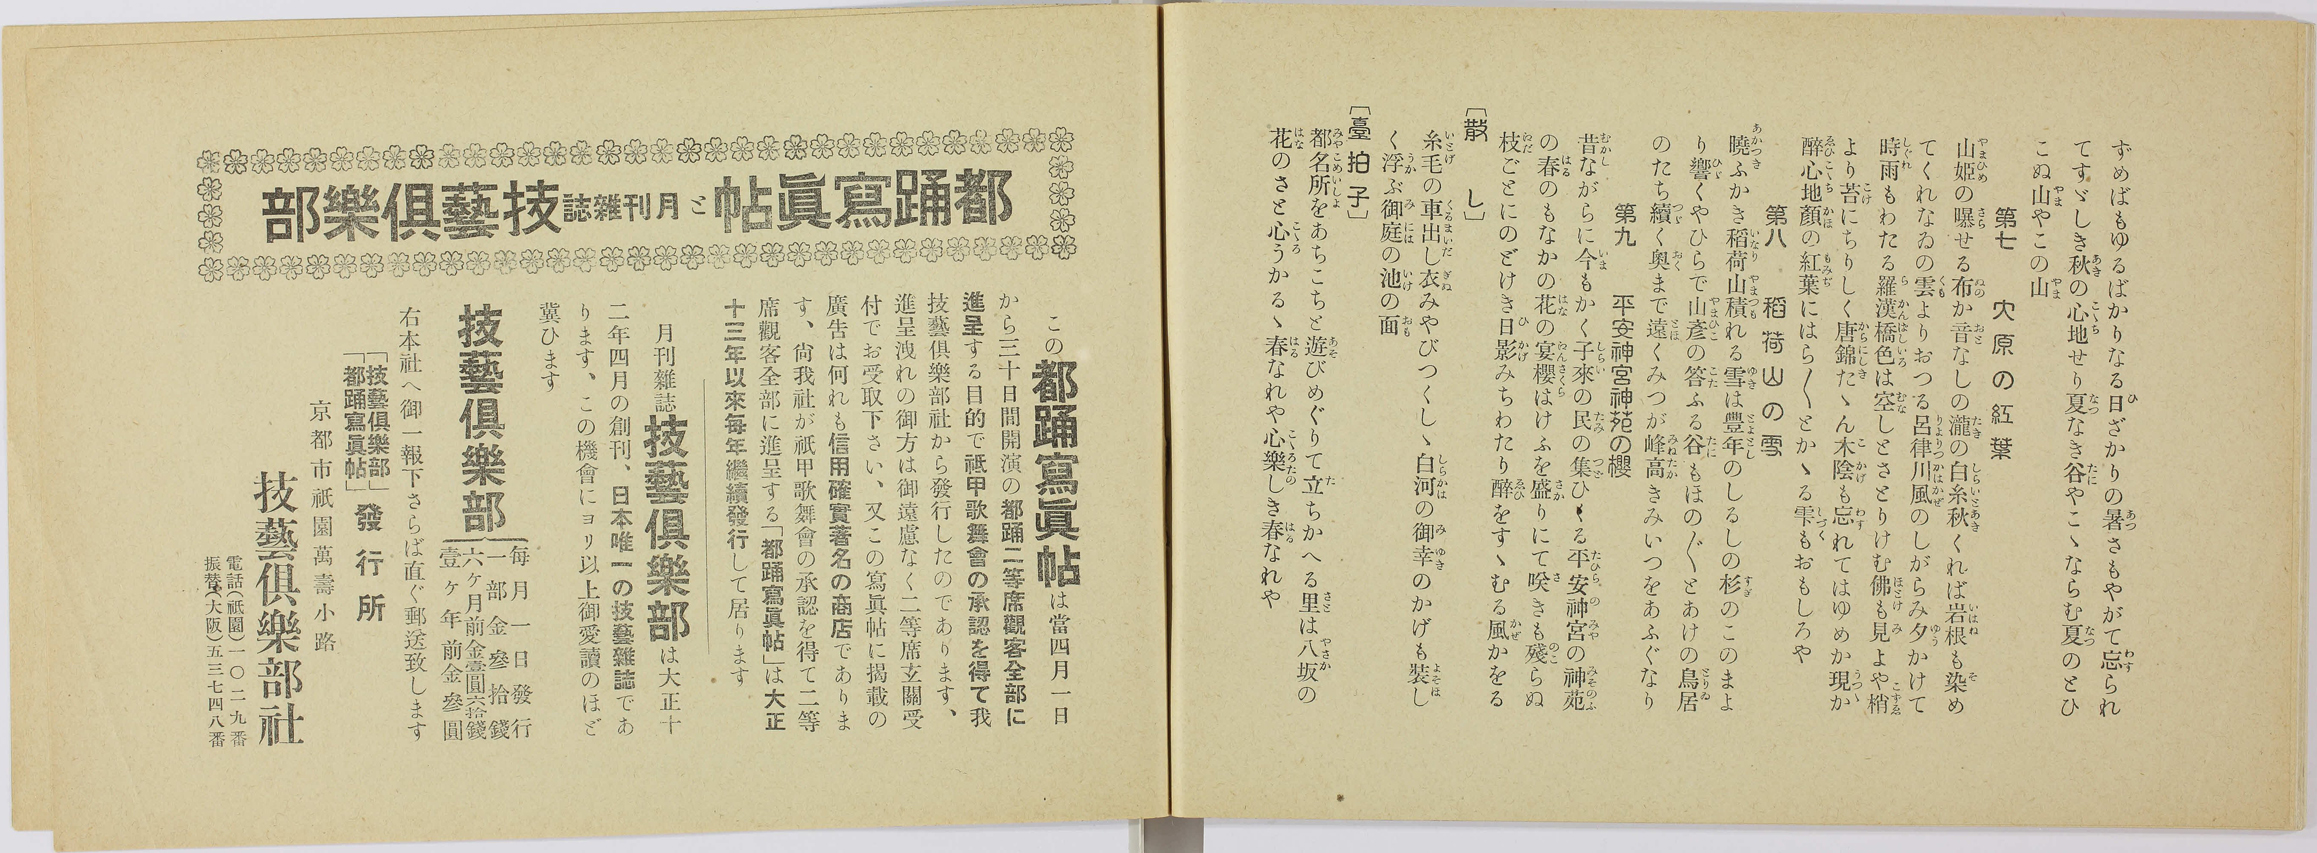 ずめばもゆるばかりなる日ざかりの暑さもやがて忘られ
てすゞしき秋の心地せり夏なき谷やこゝならむ夏のとひ
こぬ山やこの山
第七　大原の紅葉
山姫の曝せる布か音なしの瀧の白糸秋くれば岩根も染め
てくれなゐの雲よりおつる呂律川風のしがらみ夕かけて
時雨もわたる羅漢橋色は空しとさとりけむ佛も見よや梢
より苔にちりしく唐錦たゝん木陰も忘れてはゆめか現か
醉心地顏の紅葉にはら〳〵とかゝる雫もおもしろや
第八　稻荷山の雪
曉ふかき稻荷山積れる雪は豐年のしるしの杉のこのまよ
り響くやひらで山彥の答ふる谷もほの〴〵とあけの鳥居
のたち續く奧まで遠くみつが峰高きみいつをあふぐなり
第九　平安神宮神苑の櫻
昔ながらに今もかく子來の民の集ひくる平安神宮の神苑
の春のもなかの花の宴櫻はけふを盛りにて咲きも殘らぬ
枝ごとにのどけき日影みちわたり醉をすゝむる風かをる
〔散し〕
糸毛の車出し衣みやびつくしゝ白河の御幸のかげも裝し
く浮ぶ御庭の池の面
〔臺拍子〕
都名所をあちこちと遊びめぐりて立ちかへる里は八坂の
花のさと心うかるゝ春なれや心樂しき春なれや
都踊寫眞帖と月刊雜誌技藝俱樂部
この都踊寫眞帖は當四月一日
から三十日間開演の都踊二等席觀客全部に
進呈する目的で祇甲歌舞會の承認を得て我
技藝俱樂部社から發行したのであります、
進呈洩れの御方は御遠慮なく二等席玄關受
付でお受取下さい、又この寫眞帖に揭載の
廣告は何れも信用確實著名の商店でありま
す、尙我社が祇甲歌舞會の承認を得て二等
席觀客全部に進呈する「都踊寫眞帖」は大正
十三年以來每年繼續發行して居ります
月刊雜誌技藝俱樂部は大正十
二年四月の創刊、日本唯一の技藝雜誌であ
ります、この機會にヨリ以上御愛讀のほど
冀ひます
技藝俱樂部
每月一日發行
一部金參拾錢
六ヶ月前金壹圓六拾錢
壹ヶ年前金參圓
右本社へ御一報下さらば直ぐ郵送致します
「技藝俱樂部」
「都踊寫眞帖」
發行所
京都市祇園萬壽小路
技藝俱樂部社
電話(祇園)一〇二九番
振替(大阪)五三七四八番